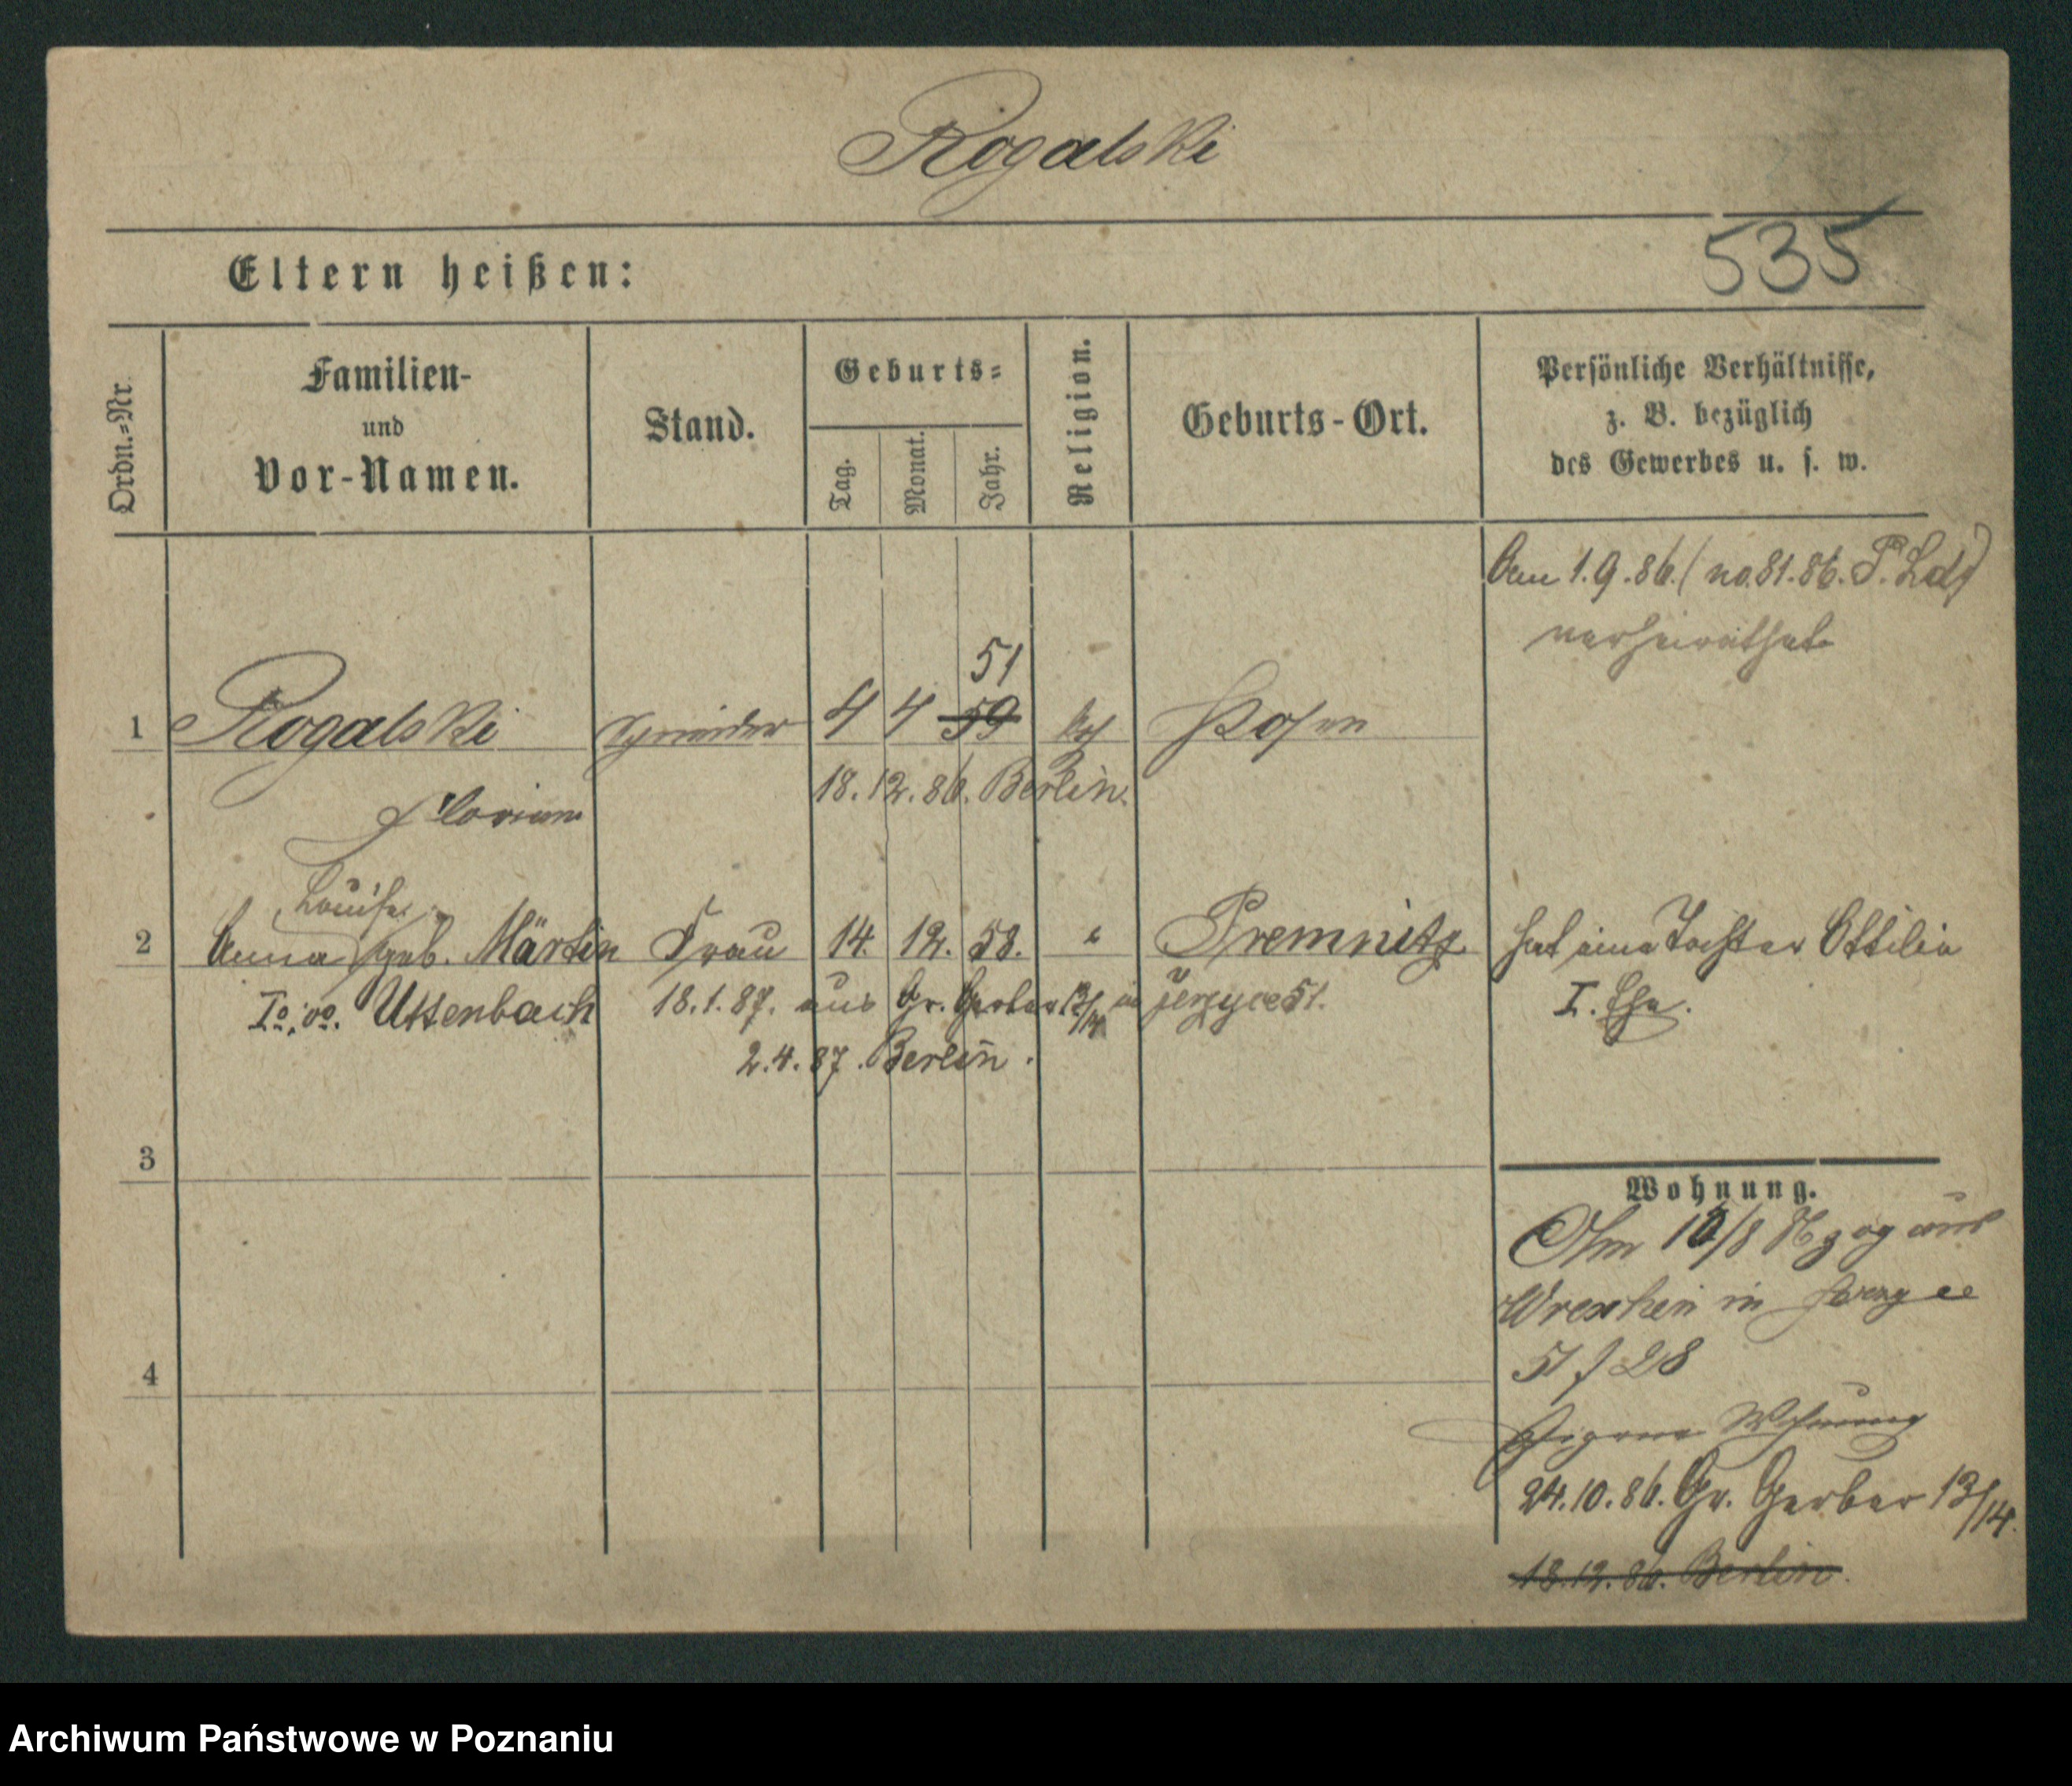 Rogalski
535
Eltern heißen:
Ordn.=Nr.
Familien-
und
Vor-Namen.
Stand.
Geburts=
Tag.
Monat.
Jahr.
Religion.
Geburts-Ort.
Persönliche Verhältnisse,
z. B. bezüglich
des Gewerbes u. s. w.
Am 1.9.86. (no. 81.86. P.
verheirathet
51
1 Rogalski Schneider 4 4 59 Posen
18.12.86. Berlin.
Florian
Louise
2 Anna geb. Märtin Frau 14. 12. 58. " Premnitz hat eine Tochter Ottilie
Io. vo. Uttenbach 18.1.87. aus Gr. Gerber 13/14 in Jerzyce 51. I. Ehe.
2.4.87. Berlin.
3
Wohnung.
Am 10/8 86 zog aus
Wreschen in
51 f 28
4
Eigene Wohnung
24.10.86. Gr. Gerber 13/14.
18.12.86. Berlin.
Archiwum Państwowe w Poznaniu